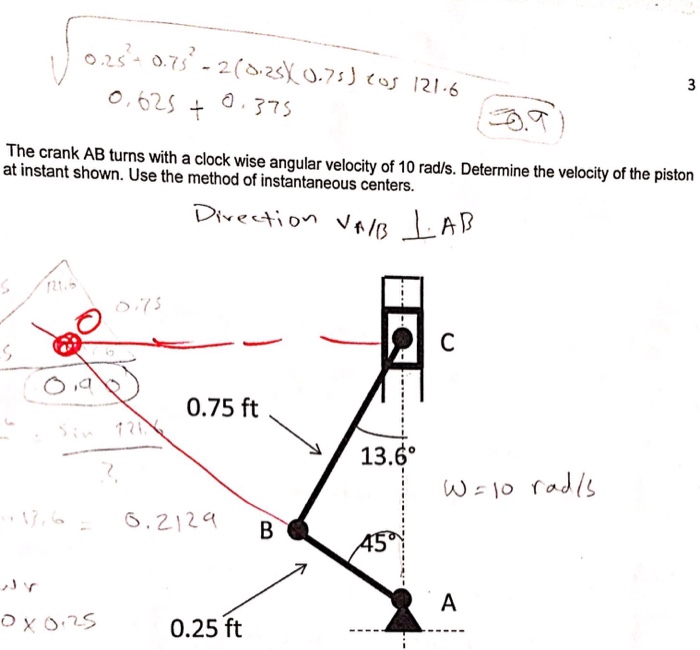 √0.25² + 0.75² - 2(0.25)(0.75) cos 121.6
3
0.625 + 0.375
=0.9
The crank AB turns with a clock wise angular velocity of 10 rad/s. Determine the velocity of the piston
at instant shown. Use the method of instantaneous centers.
Direction VA/B ⊥ AB
121.6
0.75
O
C
0.90
0.75 ft
Sin 121.6
13.6°
?
W = 10 rad/s
13.6 = 0.2129
B
45°
0 x 0.25
A
0.25 ft